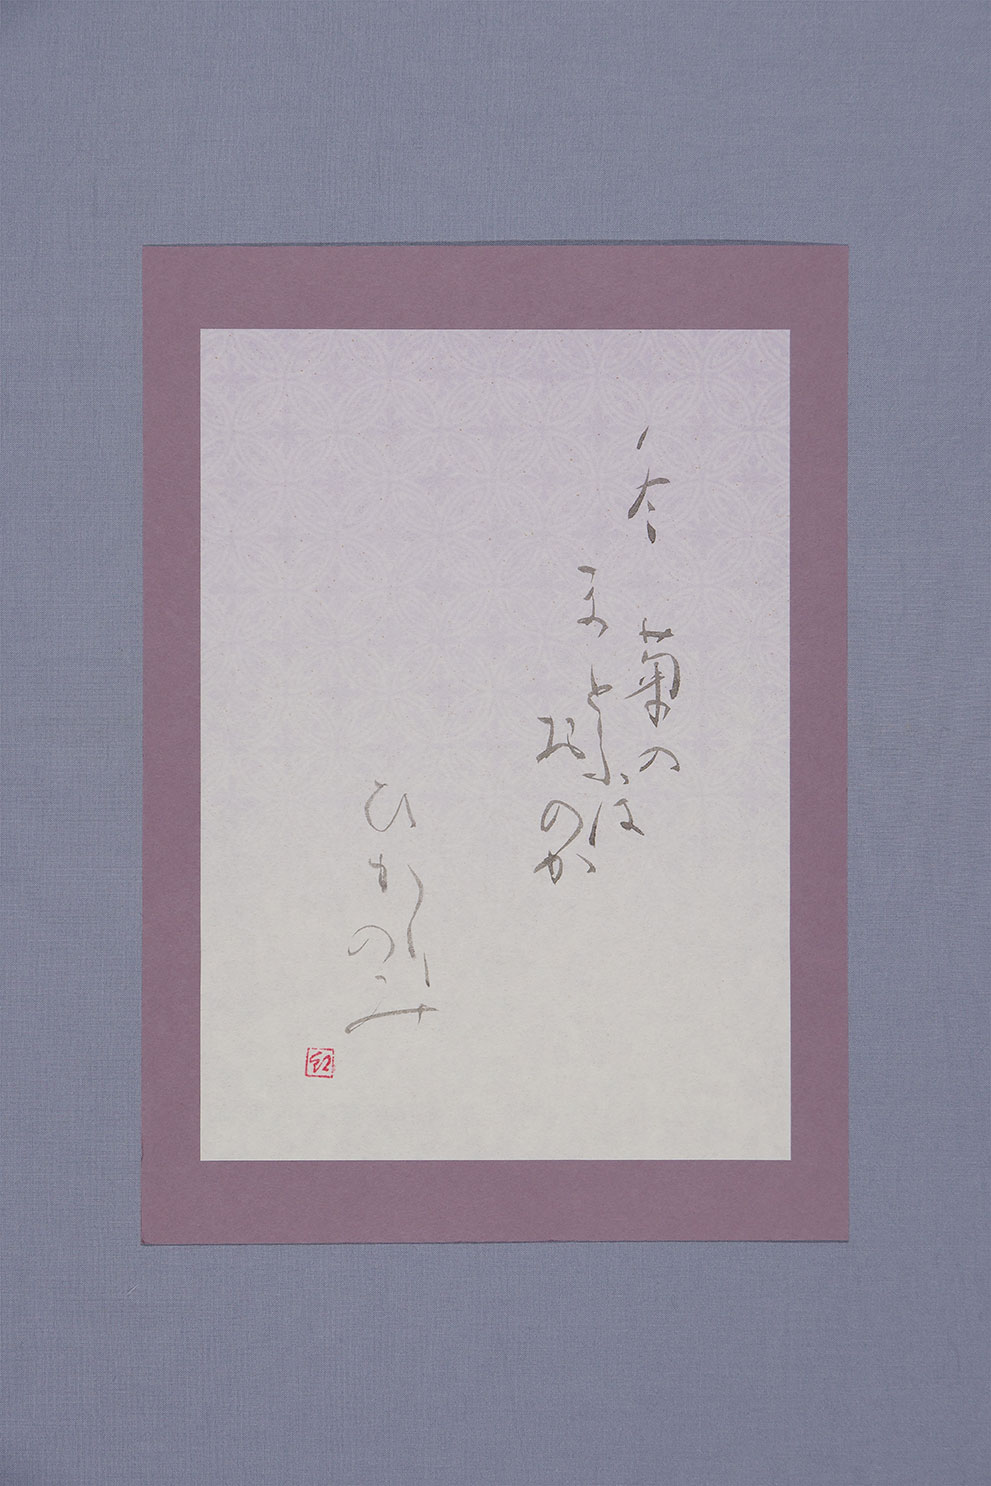 冬菊の
まとふは
おのか
ひかりのみ